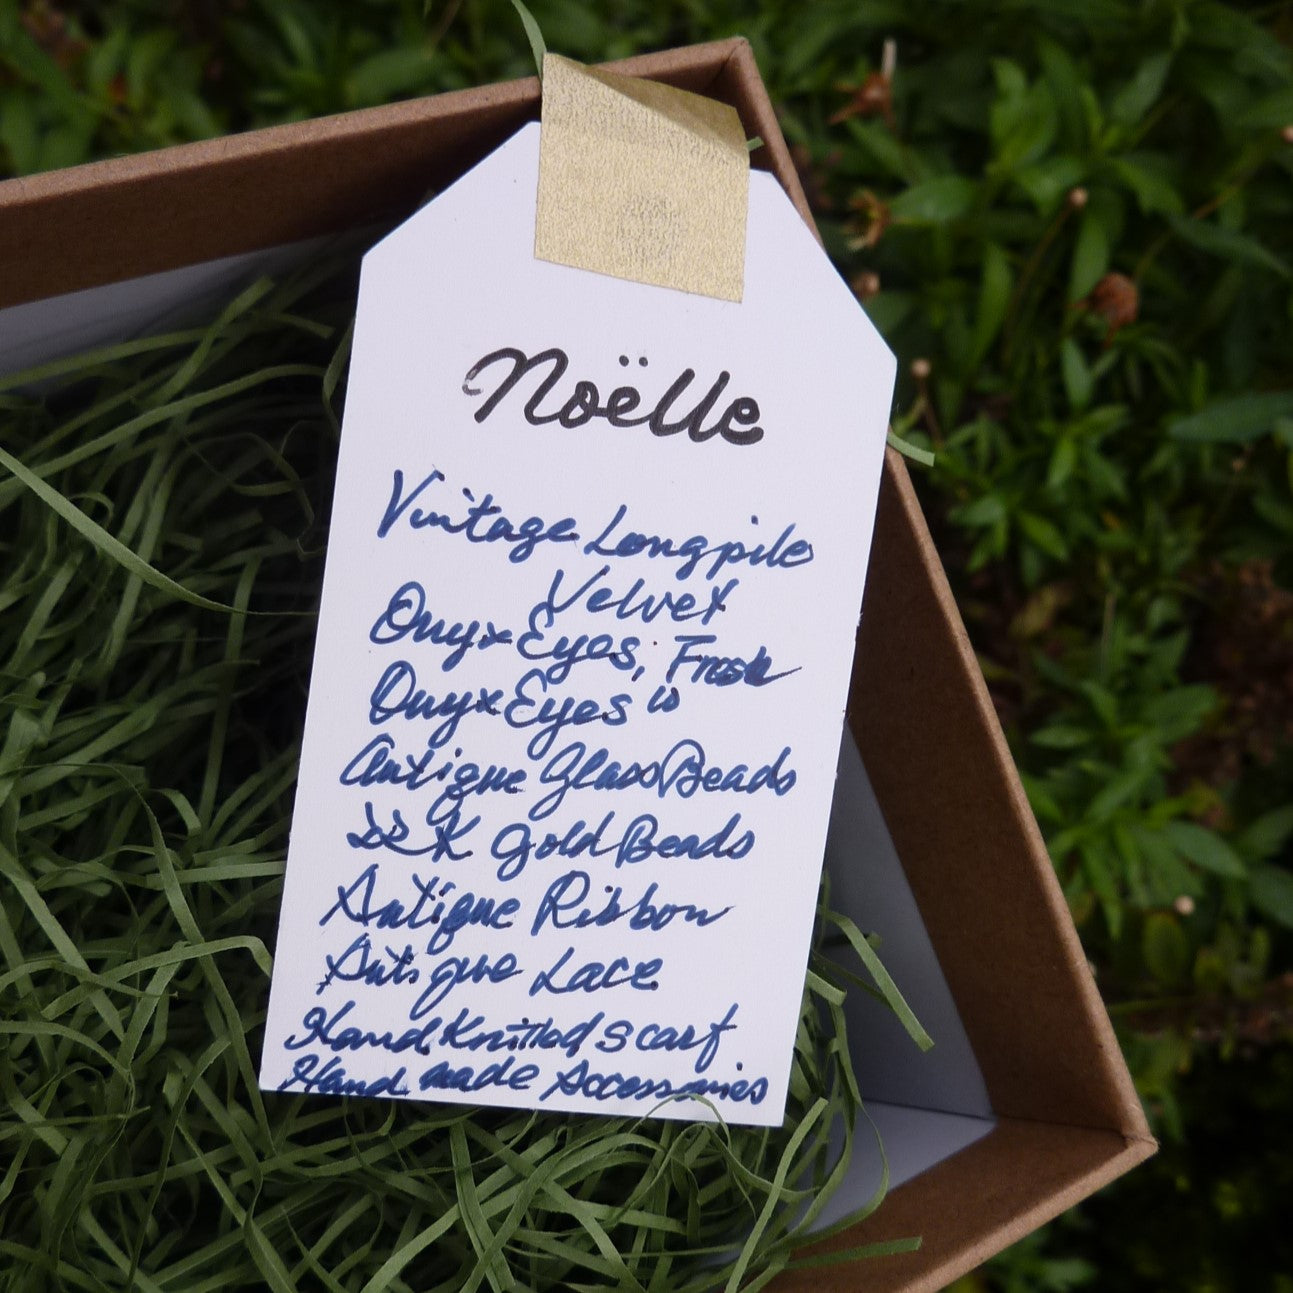 Noëlle
Vintage Longpile
Velvet
Onyx Eyes, Fresh
Onyx Eyes is
Antique Glass Beads
22K Gold Beads
Antique Ribbon
Antique Lace
Hand Knitted Scarf
Hand made Accessories